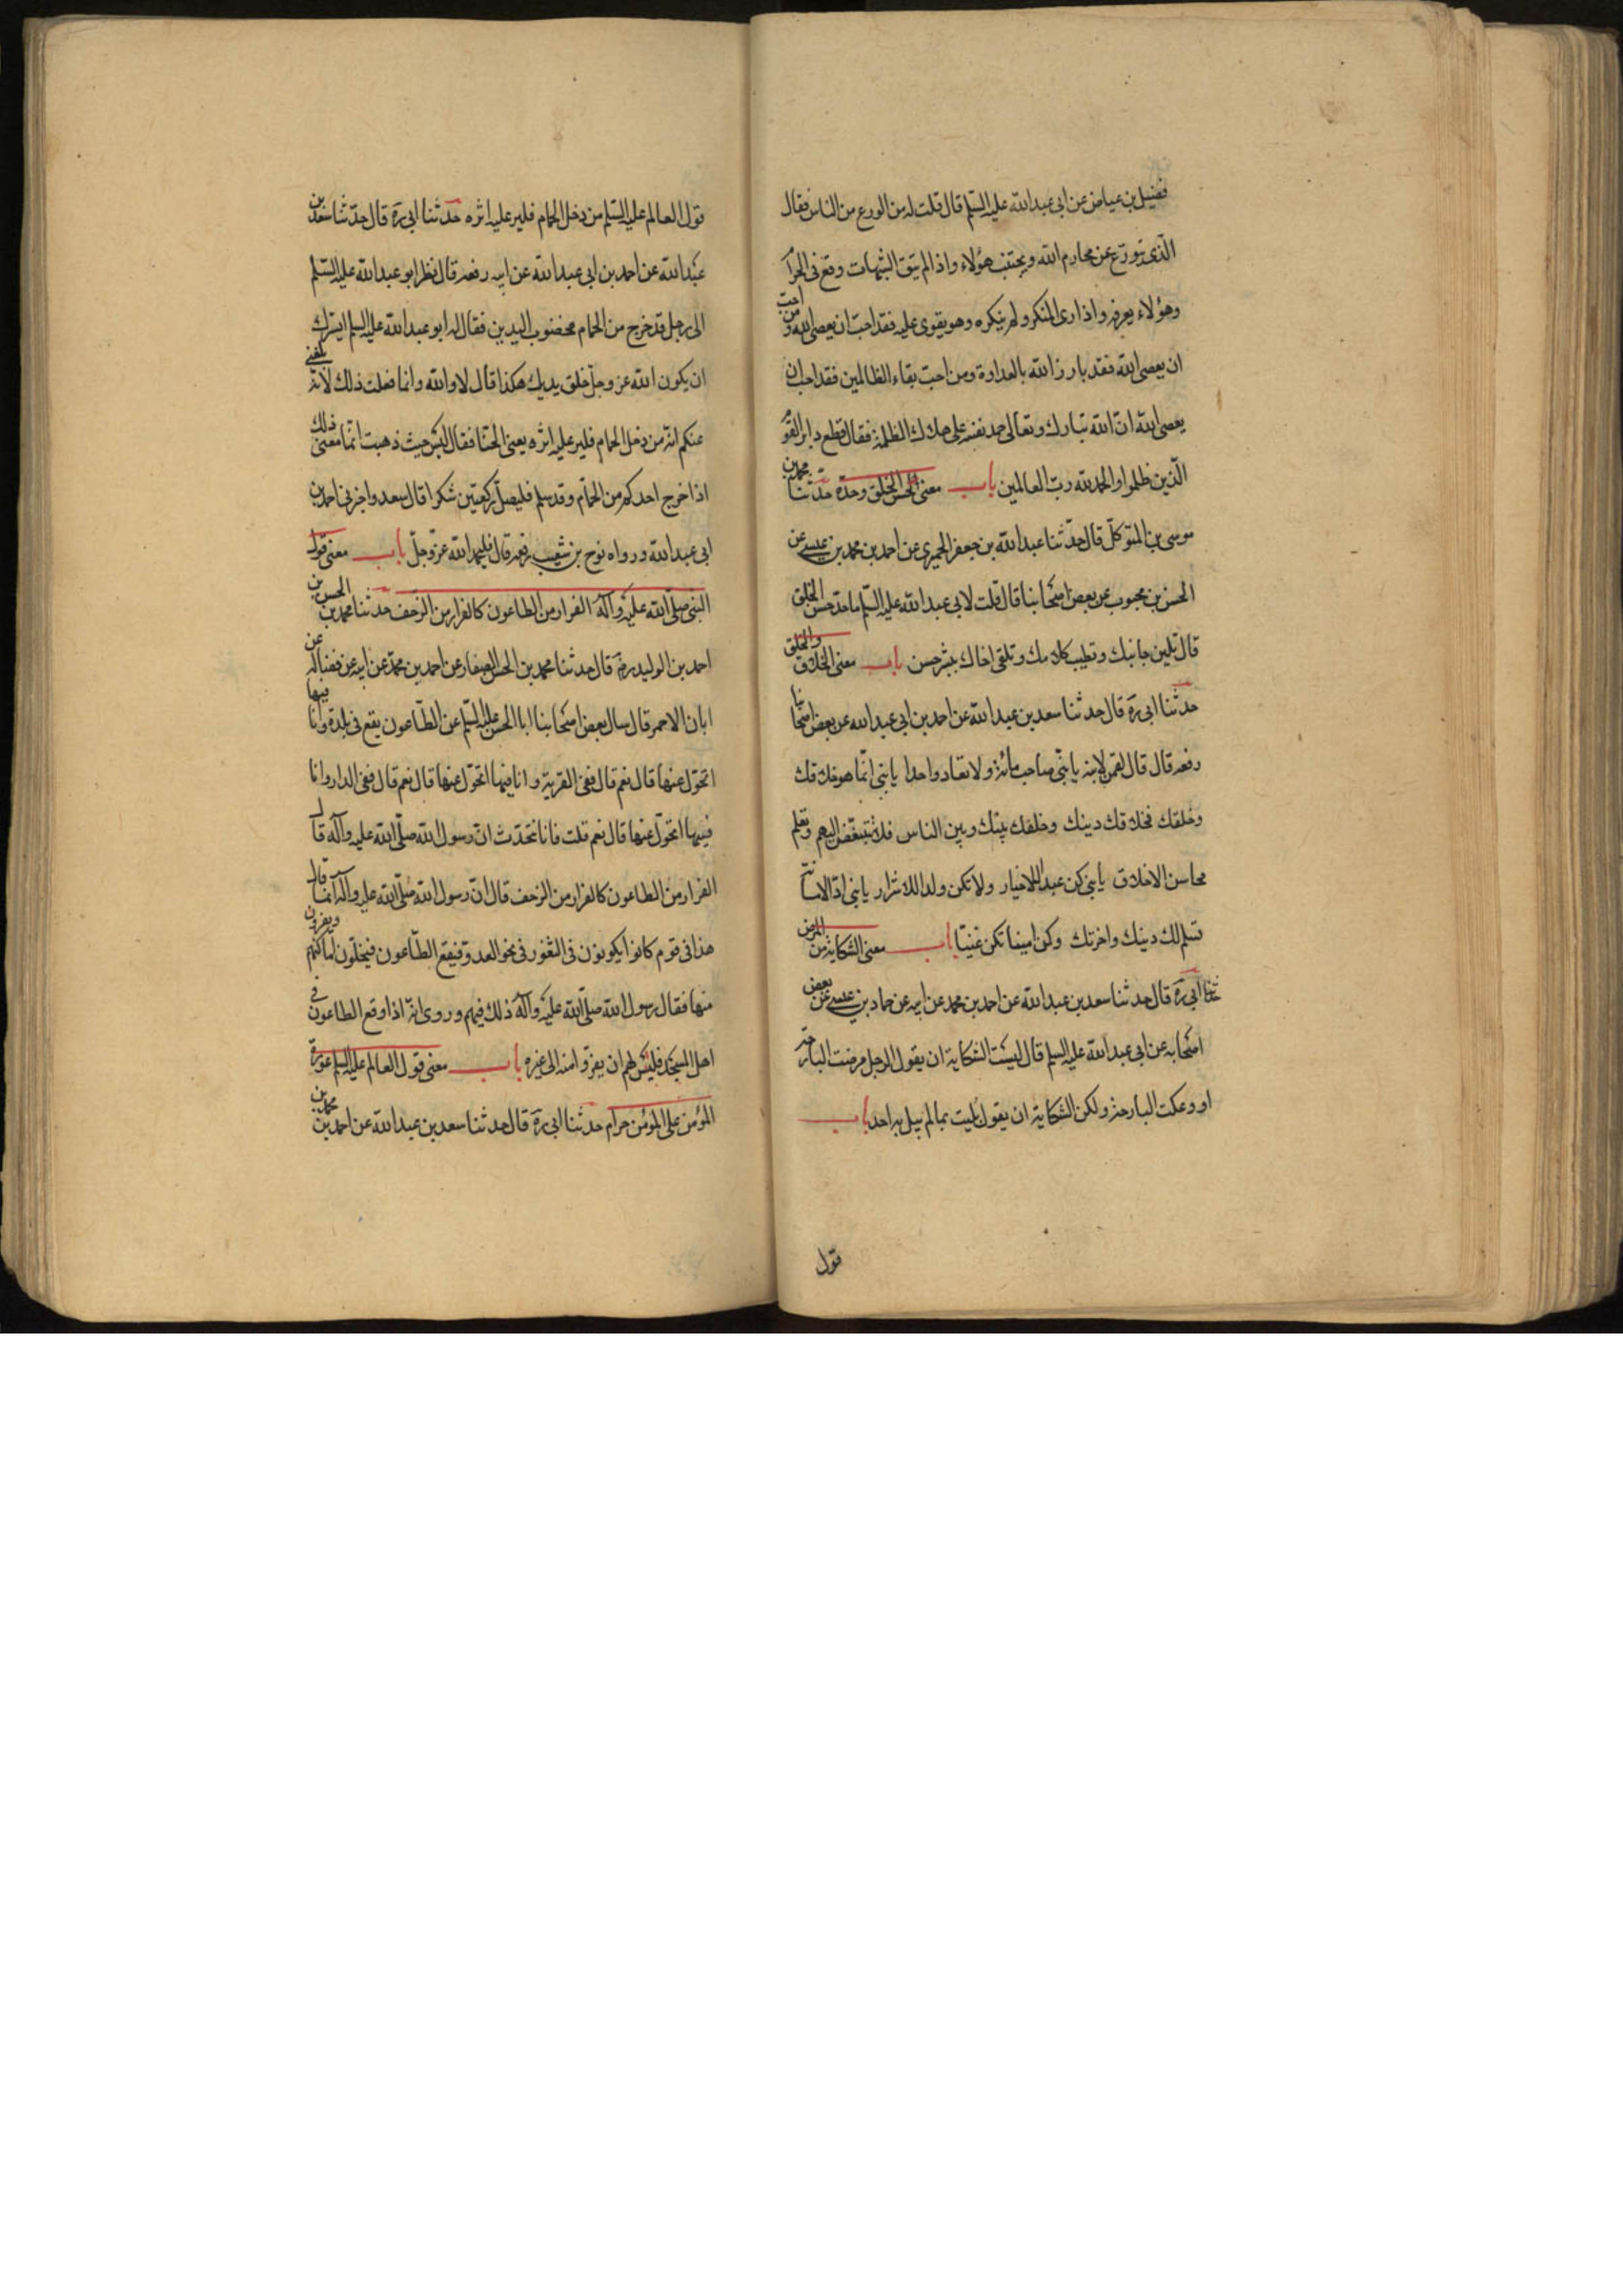 فضيل بن عياض عن ابى عبد الله عليه السلم قال قلت له من الورع من الناس فقال
الّذى يتورّع عن محارم الله ويجتنب هؤلاء واذا لم يتق الشبهات وقع فى الحرام
وهو لا يعرفه واذا راى المنكر ولم ينكره وهو يقوى عليه فقد احبّ ان يعصى الله ومن احبّ
ان يعصى الله فقد بارز الله بالعداوة ومن احبّ بقاء الظالمين فقد احب ان
يعصى الله انّ الله تبارك وتعالى حمد نفسه على هلاك الظلمة فقال فقطع دابر القوم
الّذين ظلموا والحمد لله ربّ العالمين باب معنى الحسن الخلق وحدّه حدّثنا محمد بن
موسى بن المتوكّل قال حدّثنا عبد الله بن جعفر الحميرى عن احمد بن محمد بن عيسى عن
الحسن بن محبوب عن بعض اصحابنا قال قلت لابى عبد الله عليه السلم ما حدّ حسن الخلق
قال تلين جانبك وتطيب كلامك وتلقى اخاك ببشر حسن باب معنى الخلاق والخلق
حدثنا ابى رة قال حدثنا سعد بن عبد الله عن احمد بن ابى عبد الله عن بعض اصحابنا
رفعه قال قال لقمن لابنه يا بنّى صاحب مائة ولا تعاد واحدا يا بنى انّما هو خلاقك
وخلقك فخلاقك دينك وخلقك بينك وبين الناس فلا تتبغّض اليهم وتعلم
محاسن الاخلاق يا بنى كن عبدا للاخيار ولا تكن ولدا للاشرار يا بنى ادّ الامانة
تسلم لك دينك واخرتك وكن امينا تكن غنيّا باب معنى الشكاية من المرض
حدثنا ابى رة قال حدثنا سعد بن عبد الله عن احمد بن محمد عن ابيه عن حماد بن عيسى عن بعض
اصحابه عن ابى عبد الله عليه السلم قال ليست الشكاية ان يقول الرجل مرضت البارحة
او وعكت البارحة ولكن الشكاية ان يقول بليت بما لم يبل به احد باب
قول
قول العالم عليه السلم من دخل الحمام فلير عليه اثره حدثنا ابى رة قال حدّثنا سعد بن
عبد الله عن احمد بن ابى عبد الله عن ابيه رفعه قال نظر ابو عبد الله عليه السّلم
الى رجل قد خرج من الحمام مخضوب اليدين فقال له ابو عبد الله عليه السلم ايسرك
ان يكون الله عز وجلّ خلق يديك هكذا قال لا والله وانما فعلت ذلك لانه بلغنى
عنكم انه من دخل الحمام فلير عليه اثره يعنى الحنّا فقال ليس حيث ذهبت انّما معنى ذلك
اذا خرج احدكم من الحمّام وقد سلم فليصلّ ركعتين شكرا قال سعد واخبرنى احمد بن
ابى عبد الله ورواه نوح بن شعيب رفعه قال فليحمد الله عزّ وجلّ باب معنى قول
النبى صلّى الله عليه وآله الفرار من الطاعون كالفرار من الزحف حدثنا محمد بن الحسن بن
احمد بن الوليد رة قال حدثنا محمد بن الحسن الصفار عن احمد بن محمد عن ابيه عن فضالة عن
ابان الاحمر قال سال بعض اصحابنا ابا الحسن عليه السّلم عن الطّاعون يقع فى بلدة وانا فيها
اتحوّل عنها قال نعم قال ففى القرية وانا فيها اتحوّل عنها قال نعم قال ففى الدار وانا
فيها اتحوّل عنها قال نعم قلت فانا نتحدّث انّ رسول الله صلّى الله عليه وآله قال
الفرار من الطاعون كالفرار من الزحف قال انّ رسول الله صلّى الله عليه وآله انّما قال
هذا فى قوم كانوا يكونون فى الثغور فى نحو العدو فيقع الطّاعون فيخلّون اماكنهم ويفرون
منها فقال رسول الله صلّى الله عليه وآله ذلك فيهم وروى انه اذا وقع الطاعون فى
اهل المسجد فليس لهم ان يفرّوا منه الى غيره باب معنى قول العالم عليه السلم عورة
المؤمن على المؤمن حرام حدثنا ابى رة قال حدثنا سعد بن عبد الله عن احمد بن محمد بن